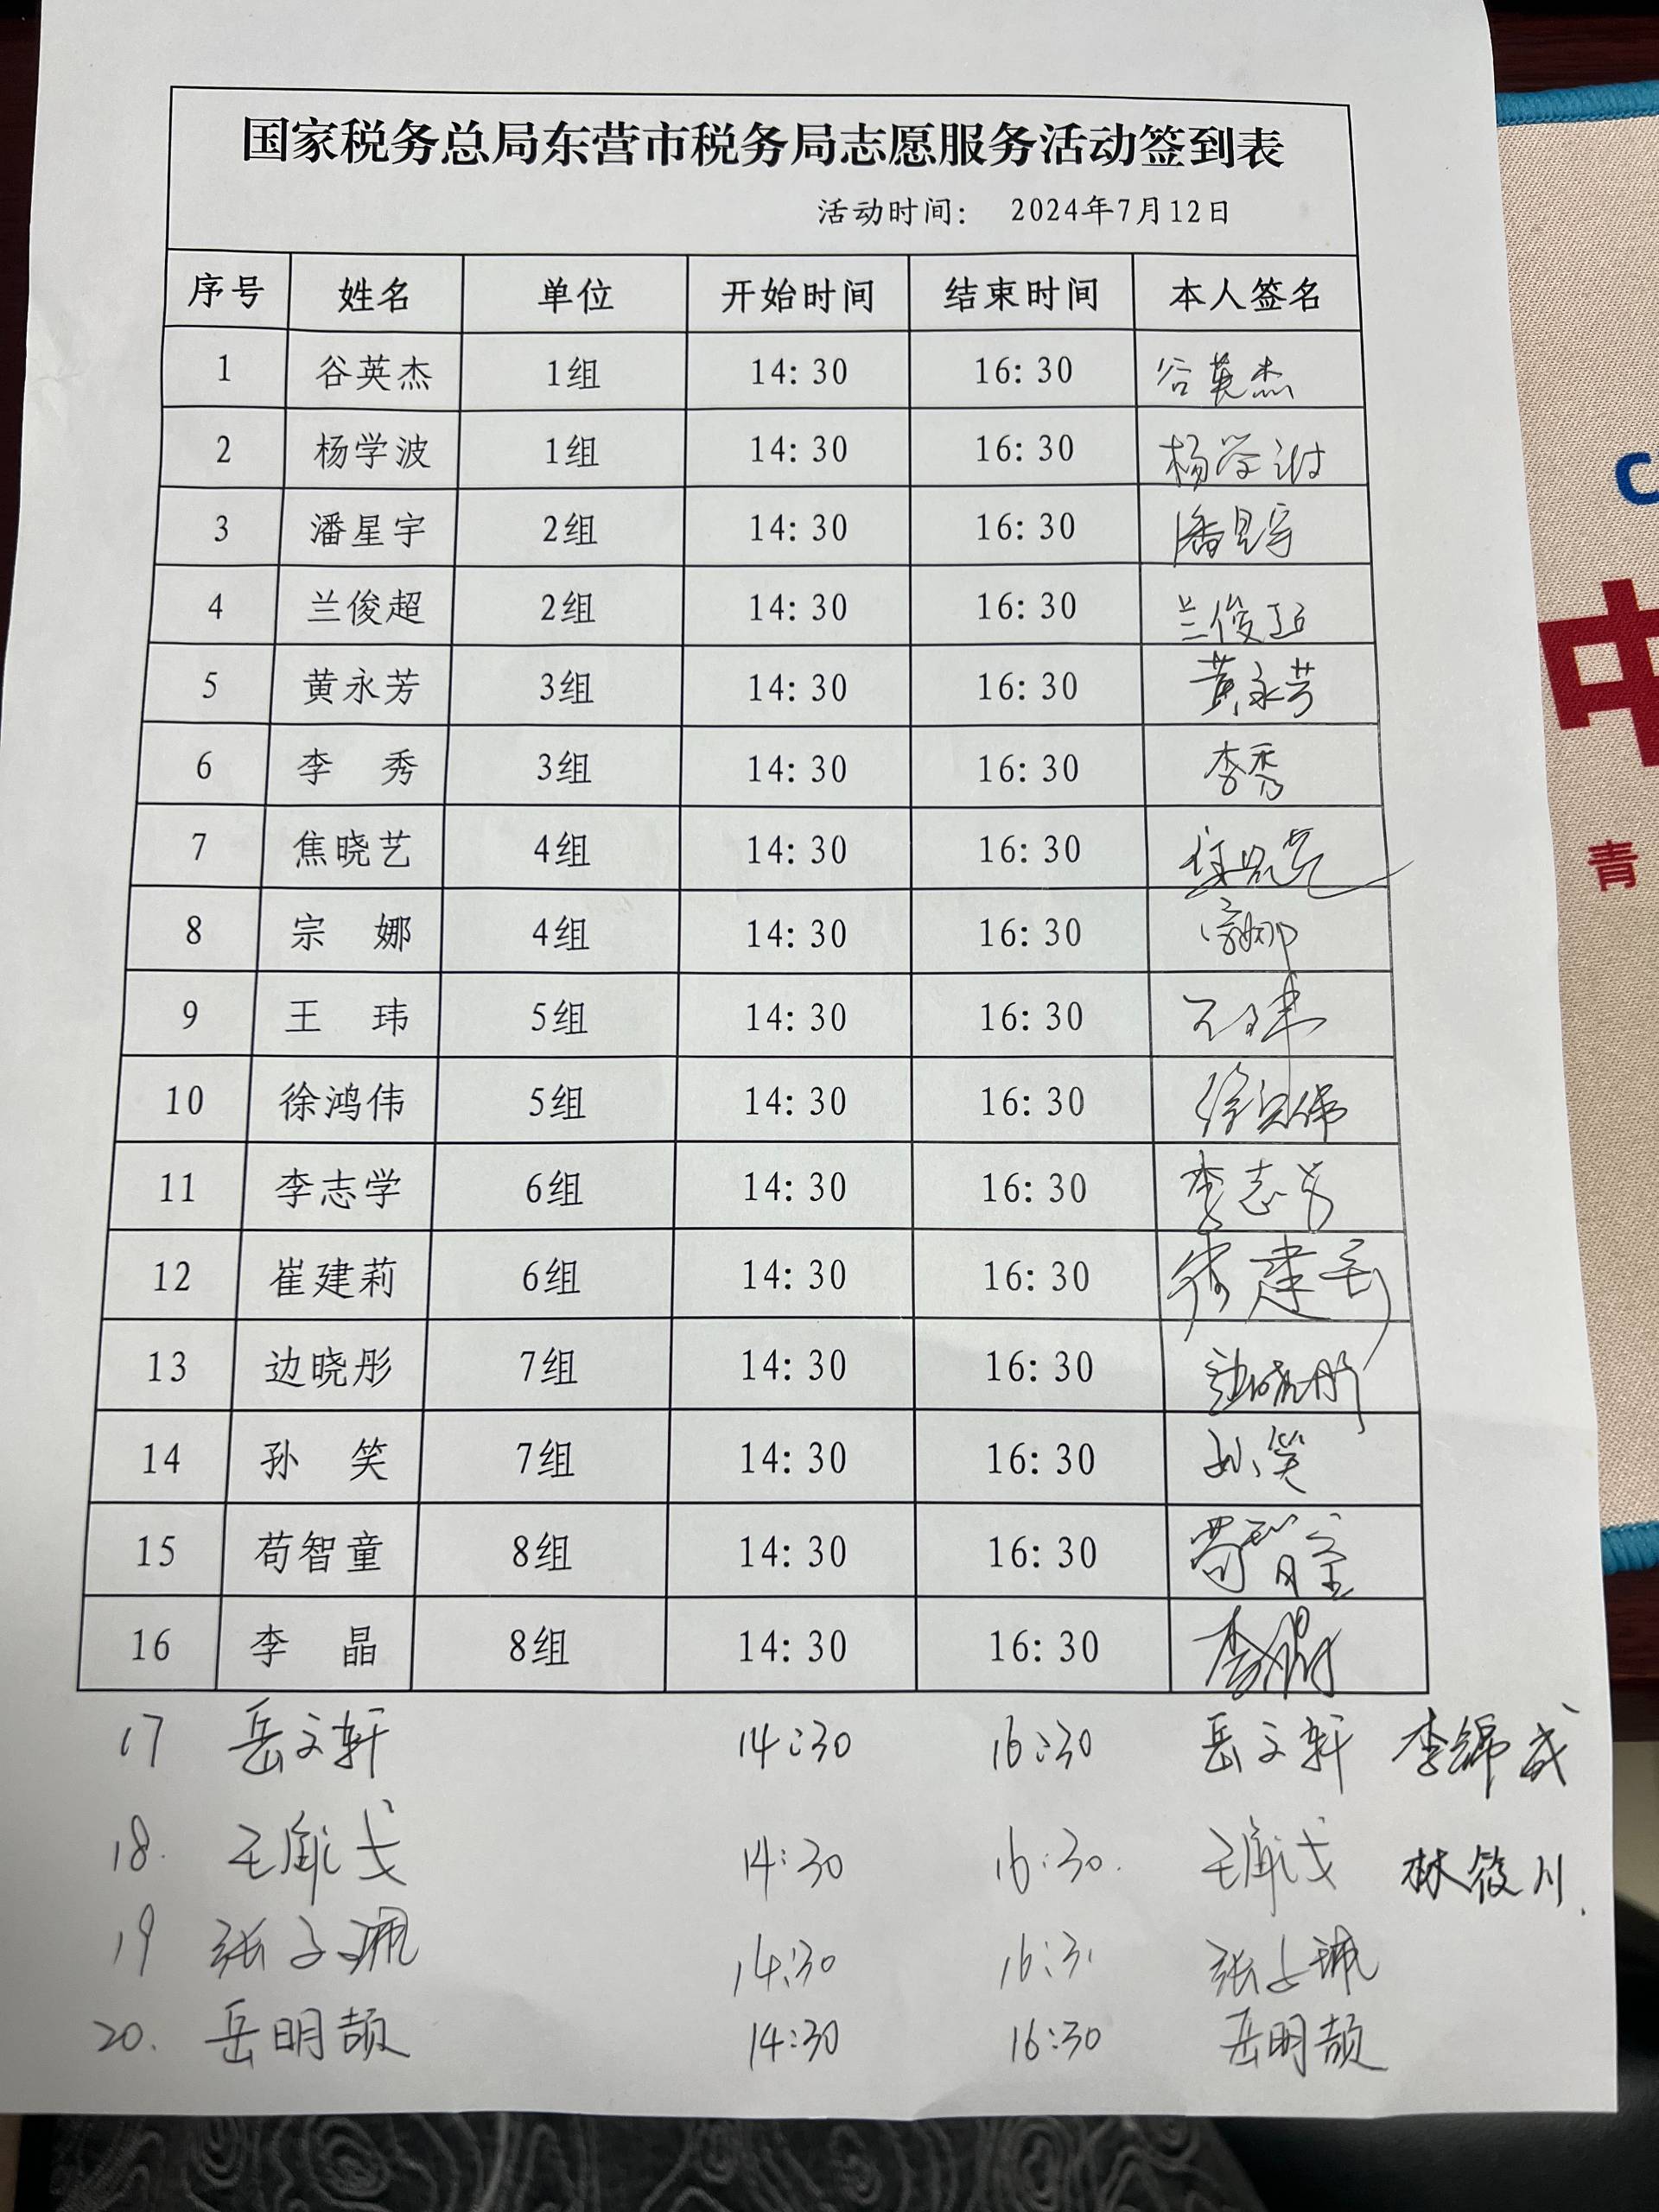 国家税务总局东营市税务局志愿服务活动签到表
活动时间： 2024年7月12日
序号 姓名 单位 开始时间 结束时间 本人签名
1 谷英杰 1组 14:30 16:30 谷英杰
2 杨学波 1组 14:30 16:30 杨学波
3 潘星宇 2组 14:30 16:30 潘星宇
4 兰俊超 2组 14:30 16:30 兰俊超
5 黄永芳 3组 14:30 16:30 黄永芳
6 李 秀 3组 14:30 16:30 李秀
7 焦晓艺 4组 14:30 16:30 焦晓艺
8 宗 娜 4组 14:30 16:30 宗娜
9 王 玮 5组 14:30 16:30 王玮
10 徐鸿伟 5组 14:30 16:30 徐鸿伟
11 李志学 6组 14:30 16:30 李志学
12 崔建莉 6组 14:30 16:30 崔建莉
13 边晓彤 7组 14:30 16:30 边晓彤
14 孙 笑 7组 14:30 16:30 孙笑
15 苟智童 8组 14:30 16:30 苟智童
16 李 晶 8组 14:30 16:30 李晶
17 岳文轩 14:30 16:30 岳文轩 李锦成
18. 14:30 16:30. 林筱川.
19 张子珮 14:30 16:3 张子珮
20. 岳明颉 14:30 16:30 岳明颉
C
中
青